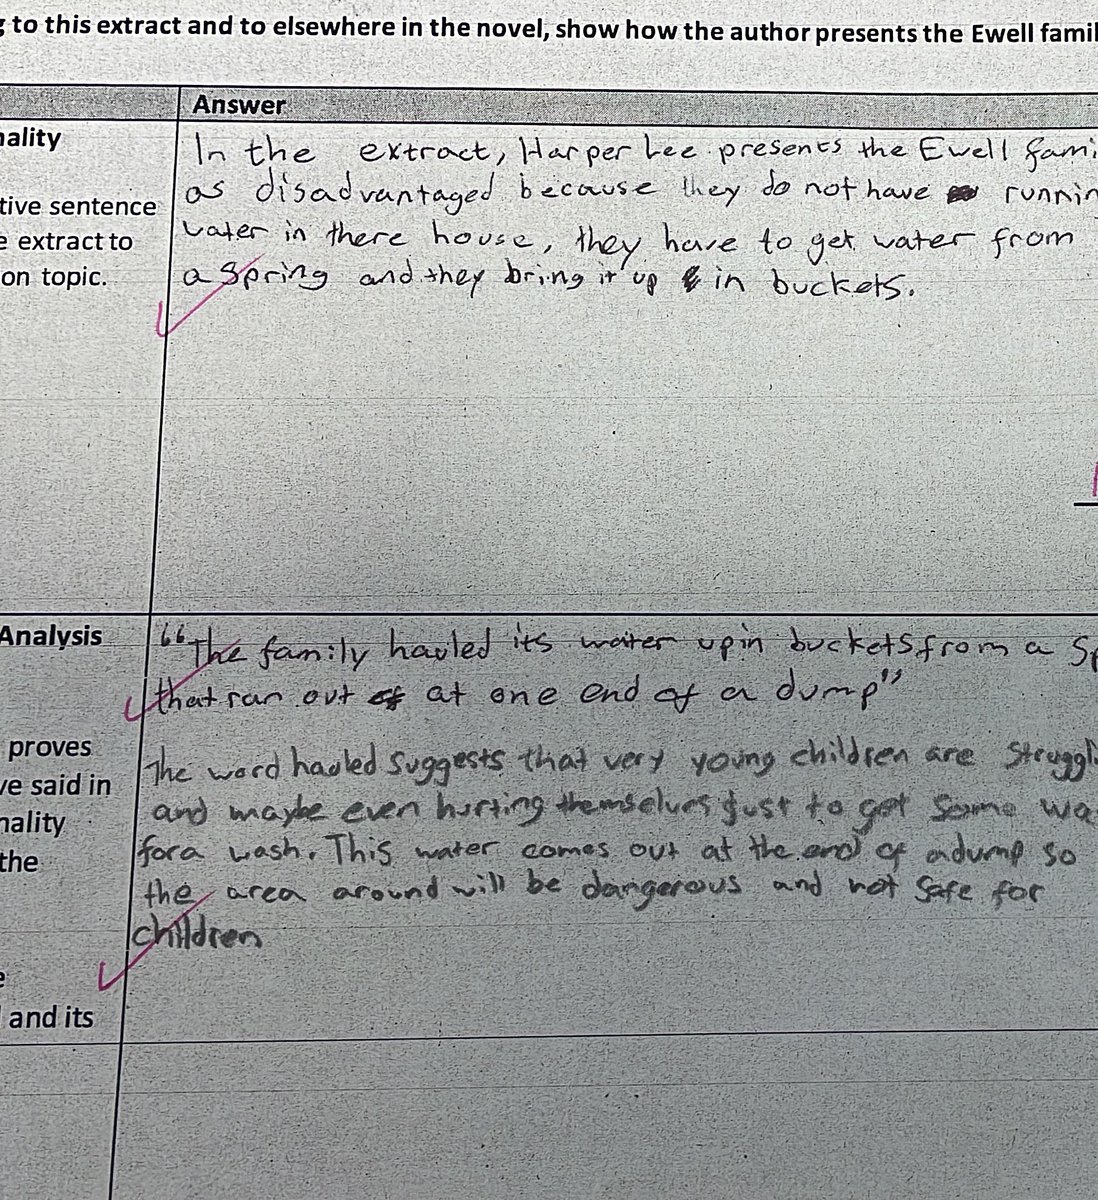 to this extract and to elsewhere in the novel, show how the author presents the Ewell famil
Answer
nality
tive sentence
e extract to
on topic.
In the extract, Harper Lee presents the Ewell fami
as disadvantaged because they do not have runnin
water in there house, they have to get water from
a Spring and they bring it up in buckets.
Analysis
proves
ve said in
nality
the
e
and its
"The family hauled its water up in buckets from a Sp
that ran out at one end of a dump"
The word haoled suggests that very young children are struggl
and maybe even hurting themselves just to get some wa
for a wash. This water comes out at the end of a dump so
the area around will be dangerous and not safe for
children